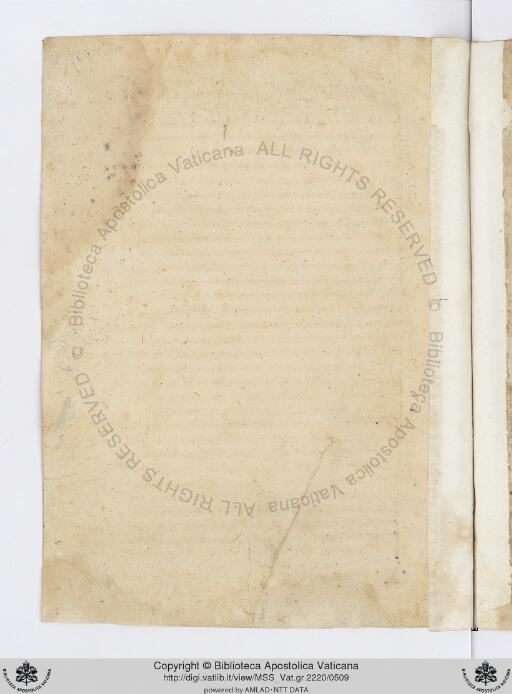 © Biblioteca Apostolica Vaticana ALL RIGHTS RESERVED
© Biblioteca Apostolica Vaticana ALL RIGHTS RESERVED
Copyright © Biblioteca Apostolica Vaticana
http://digi.vatlib.it/view/MSS_Vat.gr.2220/0509
powered by AMLAD•NTT DATA